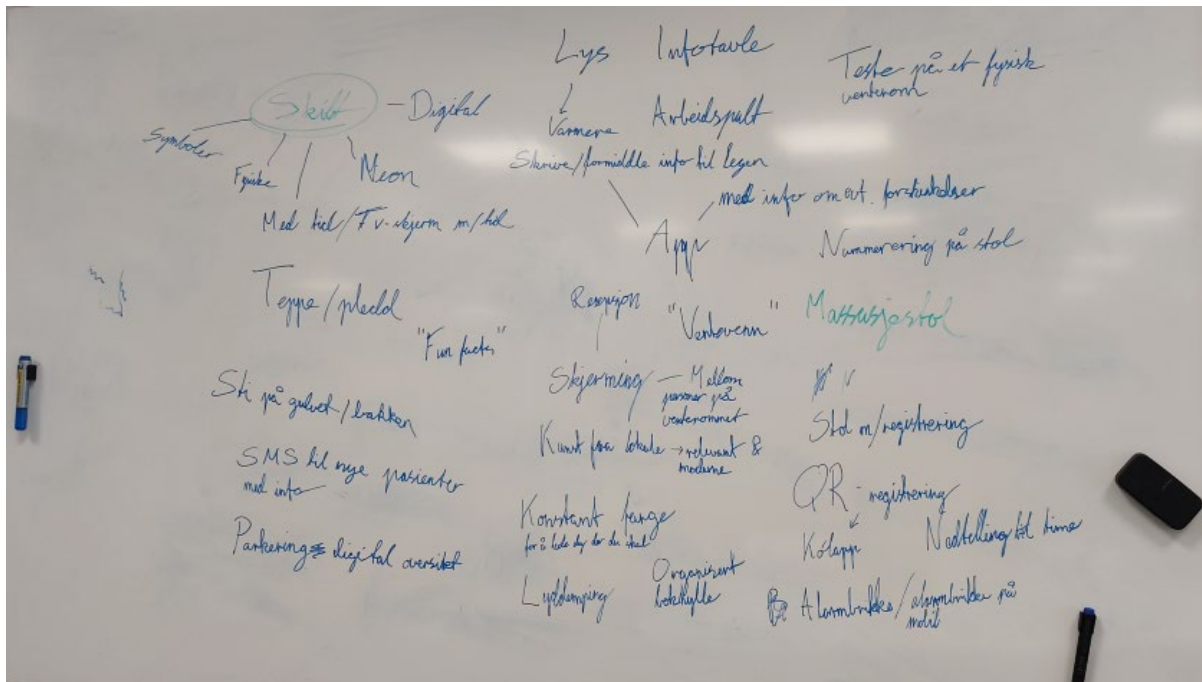 Skilt
- Digital
Symboler
Fysiske
Neon
Med tid/TV-skjerm m/tid
Teppe/pledd
"Fun facts"
Sti på gulvet/bakken
SMS til nye pasienter
med info
Parkering digital oversikt
Lys
Varmere
Infotavle
Arbeidspalt
Skrive/formidle info til legen
App
med info om evt. forsinkelser
Resepsjon
"Ventevenn"
Skjerming - Mellom
personer på
venterommet
Kunst fra lokale → relevant &
moderne
Konstant farge
for å lede deg der du skal
Lyddemping
Organisert
bokhylle
Teste på et fysisk
venterom
Nummerering på stol
Massasjestol
Stol m/registrering
QR-registrering
Kølapp
Nedtelling til time
Alarmbrikke/alarmbrikke på
mobil